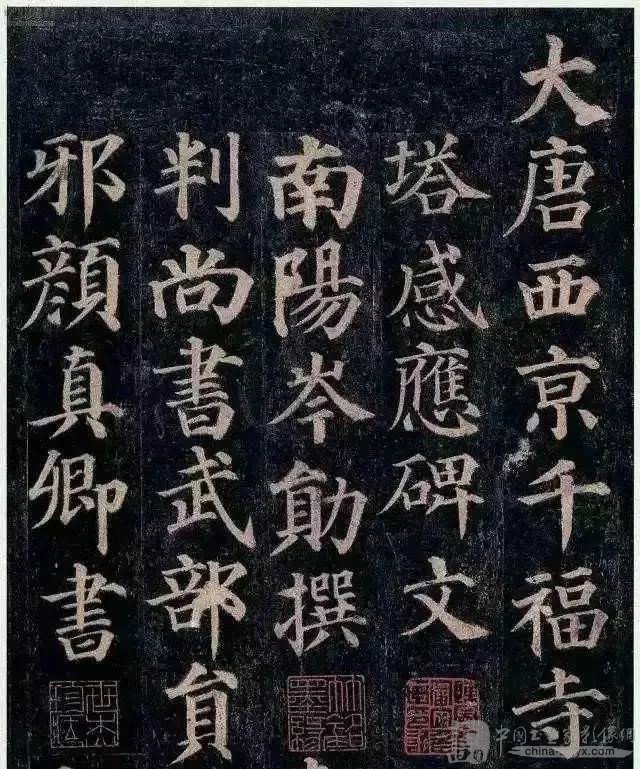 大唐西京千福寺
塔感應碑文
南陽岑勛撰
判尚書武部員
邪顏真卿書
china-